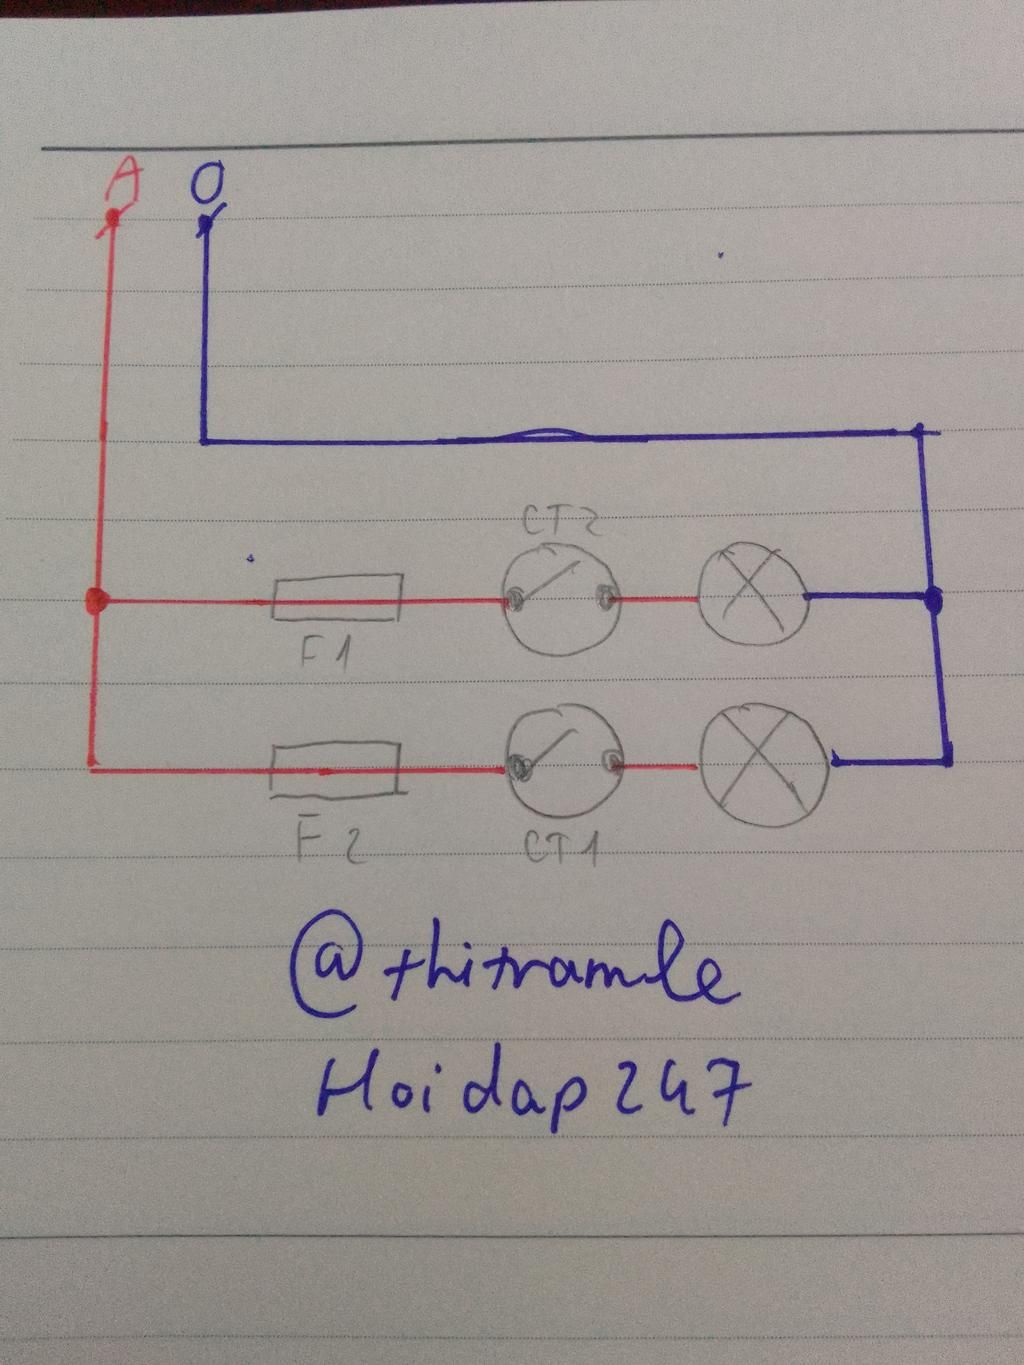 A O
CT2
F1
F2
CT1
@thitramle
Hoidap247